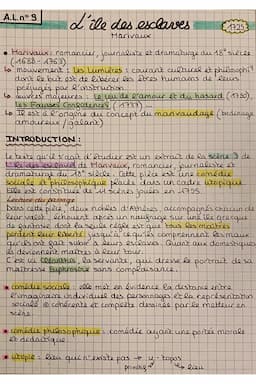 A.L. n° 9
L'île des esclaves
1725
Marivaux
• Marivaux : romancier, journaliste et dramaturge du 18e siècle
(1688 - 1763)
↳ mouvement : Les Lumières : courant culturel et philosophique
dont le but est de libérer les êtres humains de leurs
préjugés par l'instruction
↳ œuvres majeures : Le Jeu de l'amour et du hasard (1730)
Les Fausses Confidences (1737) ...
↳ Il est à l'origine du concept du marivaudage (badinage
amoureux / galant)
INTRODUCTION :
Le texte qu'il s'agit d'étudier est un extrait de la scène 3 de
L'île des esclaves de Marivaux, romancier, journaliste et
dramaturge du 18e siècle. Cette pièce est une comédie
sociale et philosophique placée dans un cadre utopique.
Elle est constituée de 11 scènes jouées en 1725.
Lecture du passage
Dans cette pièce, deux nobles d'Athènes, accompagnés chacun de
leur valet, échouent après un naufrage sur une île grecque
de fantaisie dont la seule règle est que tous les maîtres
perdent leur liberté jusqu'à ce qu'ils comprennent les maux
qu'ils ont fait subir à leurs esclaves. Quant aux domestiques
ils deviennent maîtres à leur tour.
C'est ici Cléanthis, la servante, qui dresse le portrait de sa
maîtresse Euphrosine sans complaisance.
• comédie sociale : elle met en évidence la distance entre
l'imaginaire individuel des personnages et la représentation
sociale cohérente et complète désirée par le metteur en
scène.
• comédie philosophique : comédie ayant une portée morale
et didactique.
• utopie : lieu qui n'existe pas → u - topos
lieu